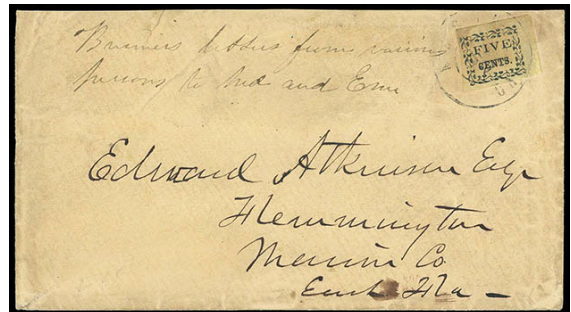 Business letters from various
persons to Fred and Ern
FIVE
CENTS.
Edward Atkinson Esqr
Flemmington
Marion Co
East Fla